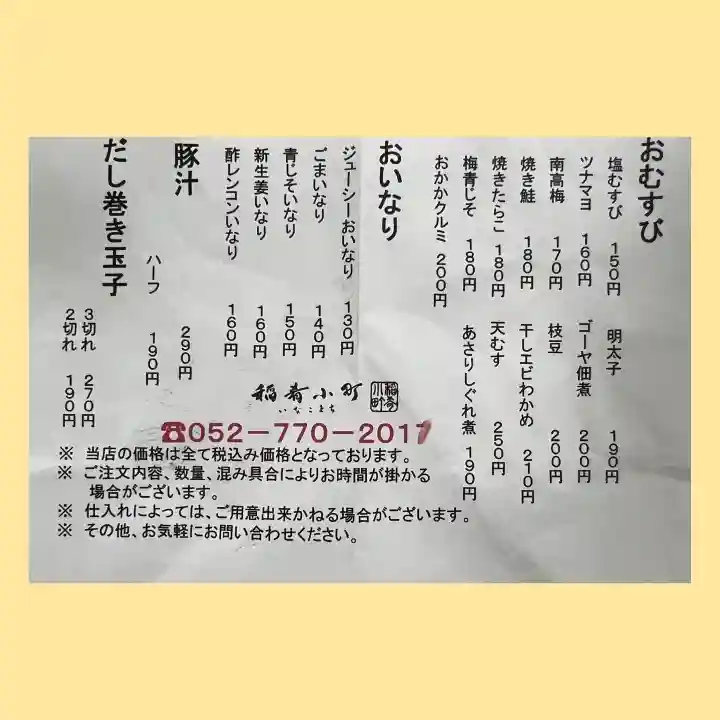 おむすび
塩むすび 150円 明太子 190円
ツナマヨ 160円 ゴーヤ佃煮 200円
南高梅 170円 枝豆 200円
焼き鮭 180円 干しエビわかめ 210円
焼きたらこ 180円 天むす 250円
梅青じそ 180円 あさりしぐれ煮 190円
おかかクルミ 200円
おいなり
ジューシーおいなり 130円
ごまいなり 140円
青じそいなり 150円
新生姜いなり 160円
酢レンコンいなり 160円
豚汁 290円
ハーフ 190円
だし巻き玉子
3切れ 270円
2切れ 190円
稲寿小町
いなこまち
稲寿小町
☎052-770-2017
※ 当店の価格は全て税込み価格となっております。
※ ご注文内容、数量、混み具合によりお時間が掛かる
場合がございます。
※ 仕入れによっては、ご用意出来かねる場合がございます。
※ その他、お気軽にお問い合わせください。